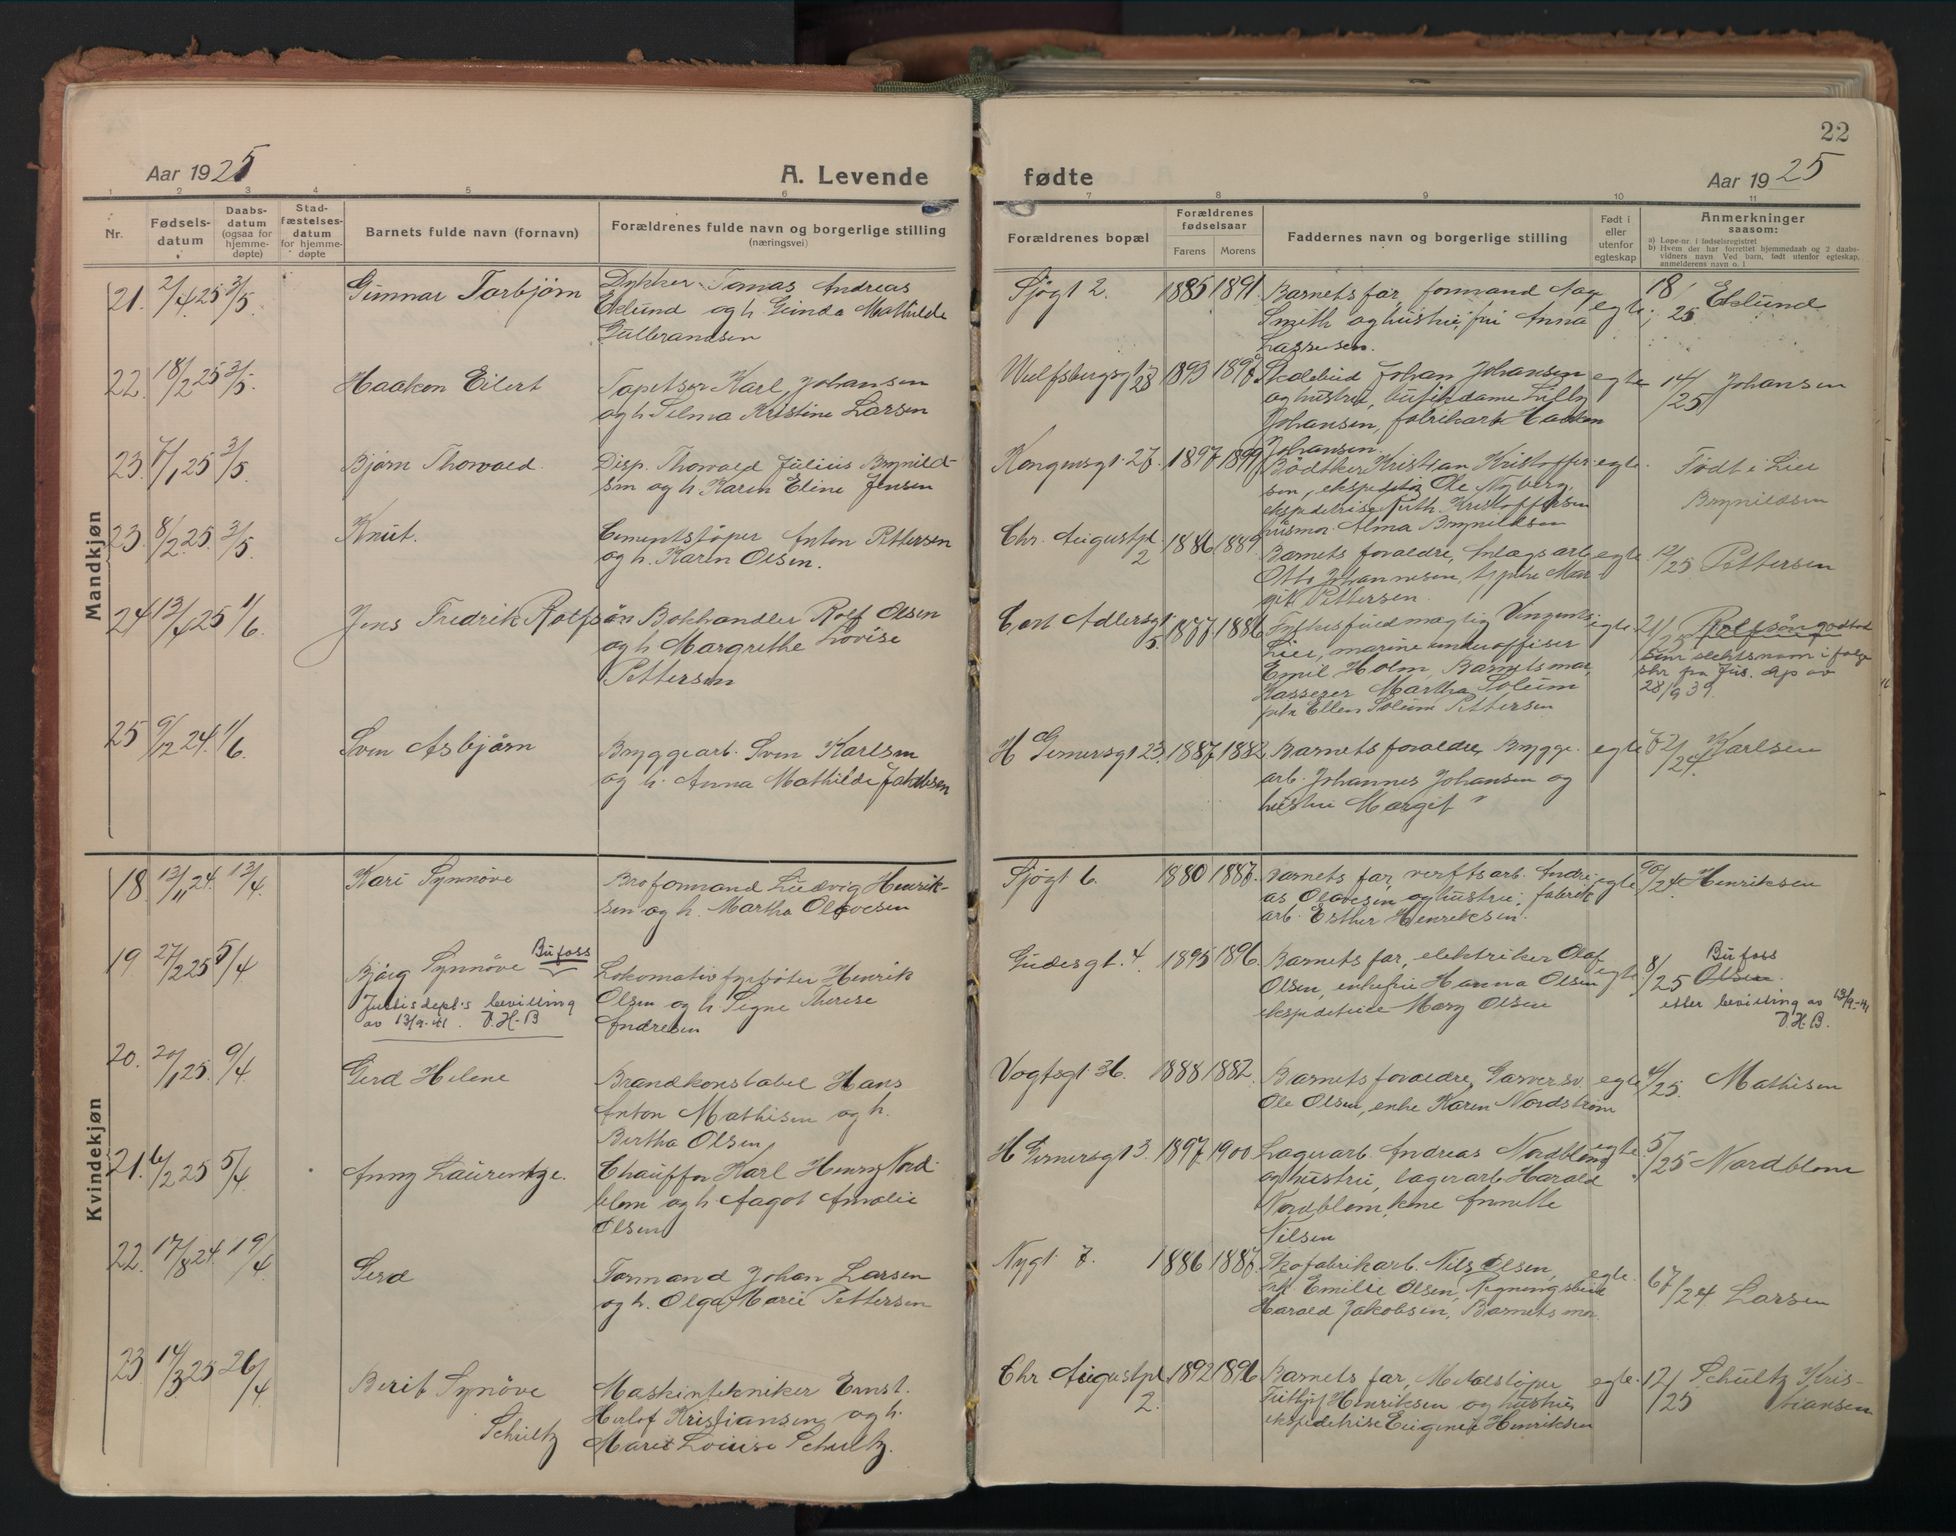 22
Aar 1925
A. Levende
fødte
Aar 1925
1 2 3 4 5 6 7 8 9 10 11
Nr.
Fødsels-
datum
Daabs-
datum
(ogsaa for
hjemme-
døpte)
Stad-
fæstelses-
datum
for hjemme-
døpte
Barnets fulde navn (fornavn)
Forældrenes fulde navn og borgerlige stilling
(næringsvei)
Forældrenes bopæl
Forældrenes
fødselsaar
Farens Morens
Faddernes navn og borgerlige stilling
Født i
eller
utenfor
egteskap
Anmerkninger
saasom:
a) Løpe-nr. i fødselsregistret
b) Hvem der har forrettet hjemmedaab og 2 daabs-
vidners navn. Ved barn, født utenfor egteskap,
anmelderens navn o. l
Mandkjøn
21. 2/4 25 3/5. Gunnar Torbjørn
Dykker Tomas Andreas
Eklund og h. Gunda Mathilde
Gulbrandsen
Sjøgt 2. 1885 1891
Barnets far, formand Aage
Smith og hustru, fru Anna
Lassesen.
egte. 18/25 Eklund
22. 18/2 25 3/5. Haakon Eilert
Tapetser Karl Johansen
og h. Selma Kristine Larsen
Wulfsbergsgt 28 1893 1898
Skolebud Johan Johansen
og hustru, Lilly
Johansen, fabrikarb Haakon
Johansen.
egte 14/25 Johansen
23. 7/1 25 3/5. Bjørn Thorvald.
Disp. Thorvald Julius Brynild-
sen og h. Karen Eline Jensen
Kongensgt. 27. 1897 1899
Bødtker Kristian Kristoffer-
sen, ekspeditør Ole Nyberg,
ekspeditrise Ruth Kristoffersen
husmor Alma Brynildsen
egte. Født i Lier
Brynildsen
23. 8/2 25. 3/5. Knut.
Cementstøper Anton Pettersen
og h. Karen Olsen.
Chr. Augustpl. 2 1886 1889
Barnets foraldre, Anlægsarb
Otto Johannesen, Mar-
git Pettersen.
egte. 12/25 Pettersen
24 13/4 25 1/6. Jens Fredrik Rolfsøn
Bokhandler Rolf Olsen
og h. Margrethe Lovise
Pettersen
Cort Adlersgt 5. 1877 1886
Vingents
Lier, marineunderoffiser
Emil Holm, Barnets mor,
Kasserer Martha Solum
Ellen Solum Pettersen
egte. 21/25 Rolfsøn godtad
som slektsnavn i følge
skr fra Jus. dep av
28/9 39.
25 9/12 24. 1/6. Sven Asbjørn
Bryggearb. Sven Karlsen
og h. Anna Mathilde Jakobsen
H Gernersgt 23. 1887 1882
Barnets foraldre, Brygge-
arb. Johannes Johansen og
hustru Margit "
egte 72/24. Karlsen
Kvindekjøn
18. 13/11 24. 13/4. Kari Synnøve
Broformand Ludvig Henrik-
sen og h. Martha Olavesen
Sjøgt 6. 1880 1887.
Barnets far, verftsarb. Andre
as Olavesen og hustru, fabrik
arb. Esther Henriksen.
egte 90/24 Henriksen
19. 27/2 25 5/4 Bjørg Synnøve Bufoss
Justisdept's bevilling
av 13/9-41. D.H.B
Lokomotivfyrbøter Henrik
Olsen og h Signe Therese
Andresen
Gudesgt. 4. 1895 1896.
Barnets far, elektriker Olaf
Olsen, enkefru Hanna Olsen
ekspeditrise Mary Olsen
egte 8/25 Olsen Bufoss
etter bevilling av 13/9-41
D.H.B.
20. 20/1 25. 9/4 Gerd Helene
Brandkonstabel Hans
Anton Mathisen og h.
Bertha Olsen,
Vogtsgt 36. 1888 1882.
Barnets foraldre, Garversv
Ole Olsen, enke Karen Nordstrøm
egte 4/25. Mathisen
21. 6/2 25 5/4 Anny Laurentze.
Chauffør Karl Henry Nord-
blom og h Aagot Amalie
Olsen
H Gernersgt 3. 1897 1900
Lagerarb. Andreas Nordblom
og hustru, lagerarb Harald
Nordblom, Annette
Nilsen
egte 5/25 Nordblom
22. 17/8 24. 19/4 Gerd
Formand Johan Larsen
og h. Olga Marie Pettersen
Nygt. 7. 1886 1887.
Skofabrikarb. Nils Olsen,
frk Emilie Olsen, Regningsbud
Harald Jakobsen, Barnets mor
egte. 67/24 Larsen
23. 14/3 25 26/4 Berit Synøve
Schultz
Maskintekniker Ernst
Herlof Kristiansen og h.
Marie Louise Schultz.
Chr Augustpl 2. 1892 1896
Barnets far, Metalstøper
Fritjof Henriksen og hustru,
ekspeditrise Eugenie Henriksen
egte. 12/25 Schultz Kris-
tiansen